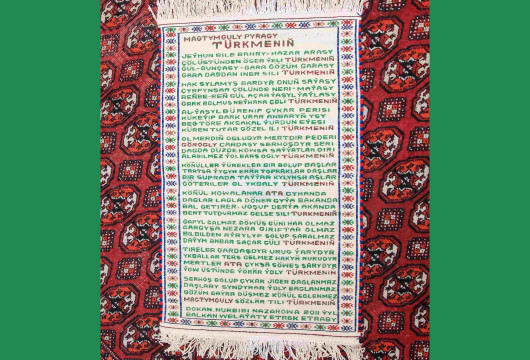 MAGTYMGULY PYRAGY
TÜRKMENIŇ
JEÝHUN BILE BAHRY-HAZAR ARASY
ÇÖL ÜSTÜNDEN ÖSER ÝELI TÜRKMENIŇ
GÜL-GUNÇASY-GARA GÖZÜM GARASY
GARA DAGDAN INER SILI TÜRKMENIŇ
HAK SYLAMYŞ BARDYR ONUŇ SAÝASY
ÇYRPYNŞAR ÇÖLÜNDE NERI-MAÝASY
REŇBE-REŇ GÜL AÇAR ÝAŞYL ÝAÝLASY
GARK BOLMUŞ REÝHANA ÇÖLI TÜRKMENIŇ
AL-ÝAŞYL BÜRENIP ÇYKAR PERISI
KÜKEÝIP BARK URAR ANBARYŇ YSY
BEG TÖRE AKSAKAL ÝURDUŇ EÝESI
KÜREN TUTAR GÖZEL ILI TÜRKMENIŇ
OL MERDIŇ OGLUDYR MERTDIR PEDERI
GÖROGLY GARDAŞY SERHOŞDYR SERI
DAGDA DÜZDE KOWSA SAÝÝATLAR DIRI
ALABILMEZ ÝOLBARS OGLY TÜRKMENIŇ
KÖŇÜLLER ÝÜREKLER BIR BOLUP BAŞLAR
TARTSA ÝYGYN ERÄR TOPRAKLAR DAŞLAR
BIR SUPRADA TAÝÝAR KYLYNSA AŞLAR
GÖTERILER OL YKBALY TÜRKMENIŇ
KÖŇÜL HOWALANAR ATA ÇYKANDA
DAGLAR LAGLA DÖNER GYÝA BAKANDA
BAL GETIRER JOŞUP DERÝA AKANDA
BENT TUTDURMAZ GELSE SILI TÜRKMENIŇ
GAPYL GALMAZ DÖWÜŞ GÜNI HAR OLMAZ
GARGYŞA NEZARA GIRIFTAR OLMAZ
BILBILDEN AÝRYLYP SOLUP SARALMAZ
DAÝYM ANBAR SAÇAR GÜLI TÜRKMENIŇ
TIRELER GARDAŞDYR URUG ÝARYDYR
YKBALLAR TERS GELMEZ HAKYŇ NURUDYR
MERTLER ATA ÇYKSA SÖWEŞ SARYDYR
ÝOW ÜSTÜNDE ÝÖRÄR ÝOLY TÜRKMENIŇ
SERHOŞ BOLUP ÇYKAR JIGER DAGLANMAZ
DAŞLARY SYNDYRAR ÝOLY BAGLANMAZ
GÖZÜM GAÝRA DÜŞMEZ KÖŇÜL EGLENMEZ
MAGTYMGULY SÖZLÄR TILI TÜRKMENIŇ
DOKAN NURBIBI NAZAROWA 2011 ÝYL
BALKAN WELAÝATY ETREK ETRABY